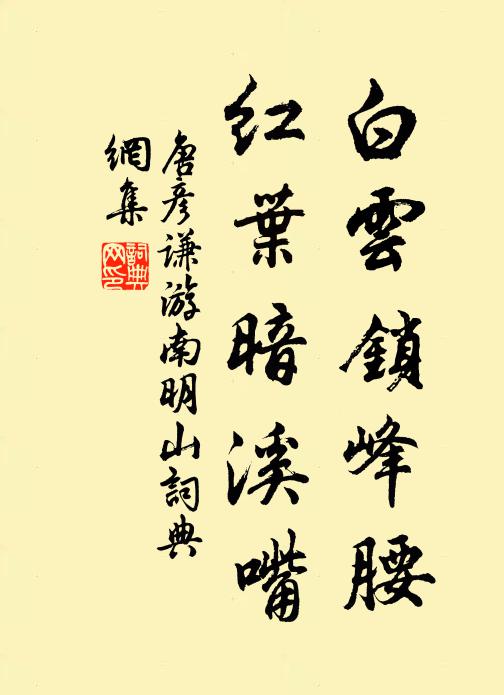 白雲鎖峰腰
紅葉暗溪嘴
唐彦谦游南明山詞典
網集
詞典網印